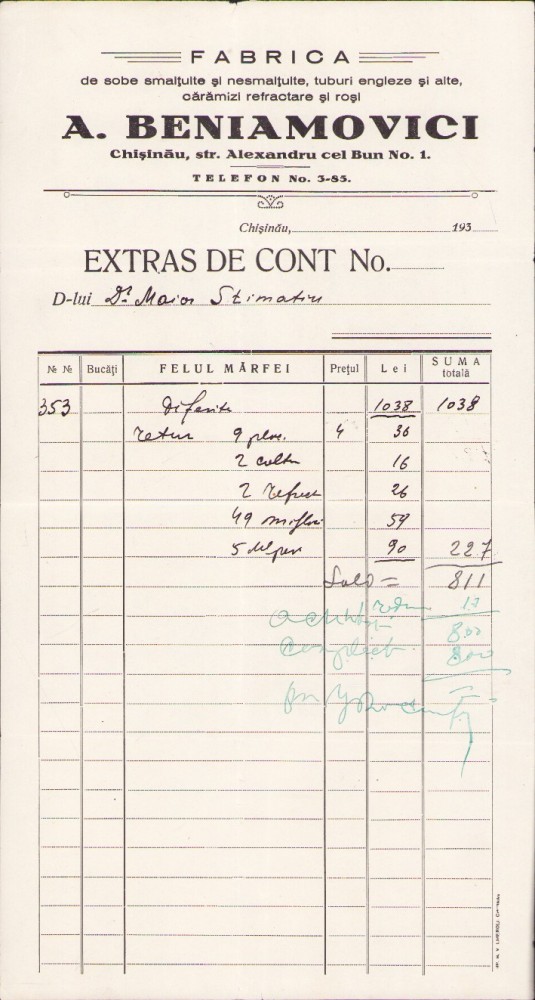 FABRICA
de sobe smalțuite și nesmalțuite, tuburi engleze și alte,
cărămizi refractare și roși
A. BENIAMOVICI
Chișinău, str. Alexandru cel Bun No. 1.
TELEFON No. 3-85.
Chișinău, 193
EXTRAS DE CONT No.
D-lui Dr. Maior Stimatiu
№ № Bucăți FELUL MĂRFEI Prețul Lei SUMA totală
353 diferite 1038 1038
retur 9 4 36
2 16
2 26
49 59
5 90 227
Sold = 811
11
achitat 800
complect 800